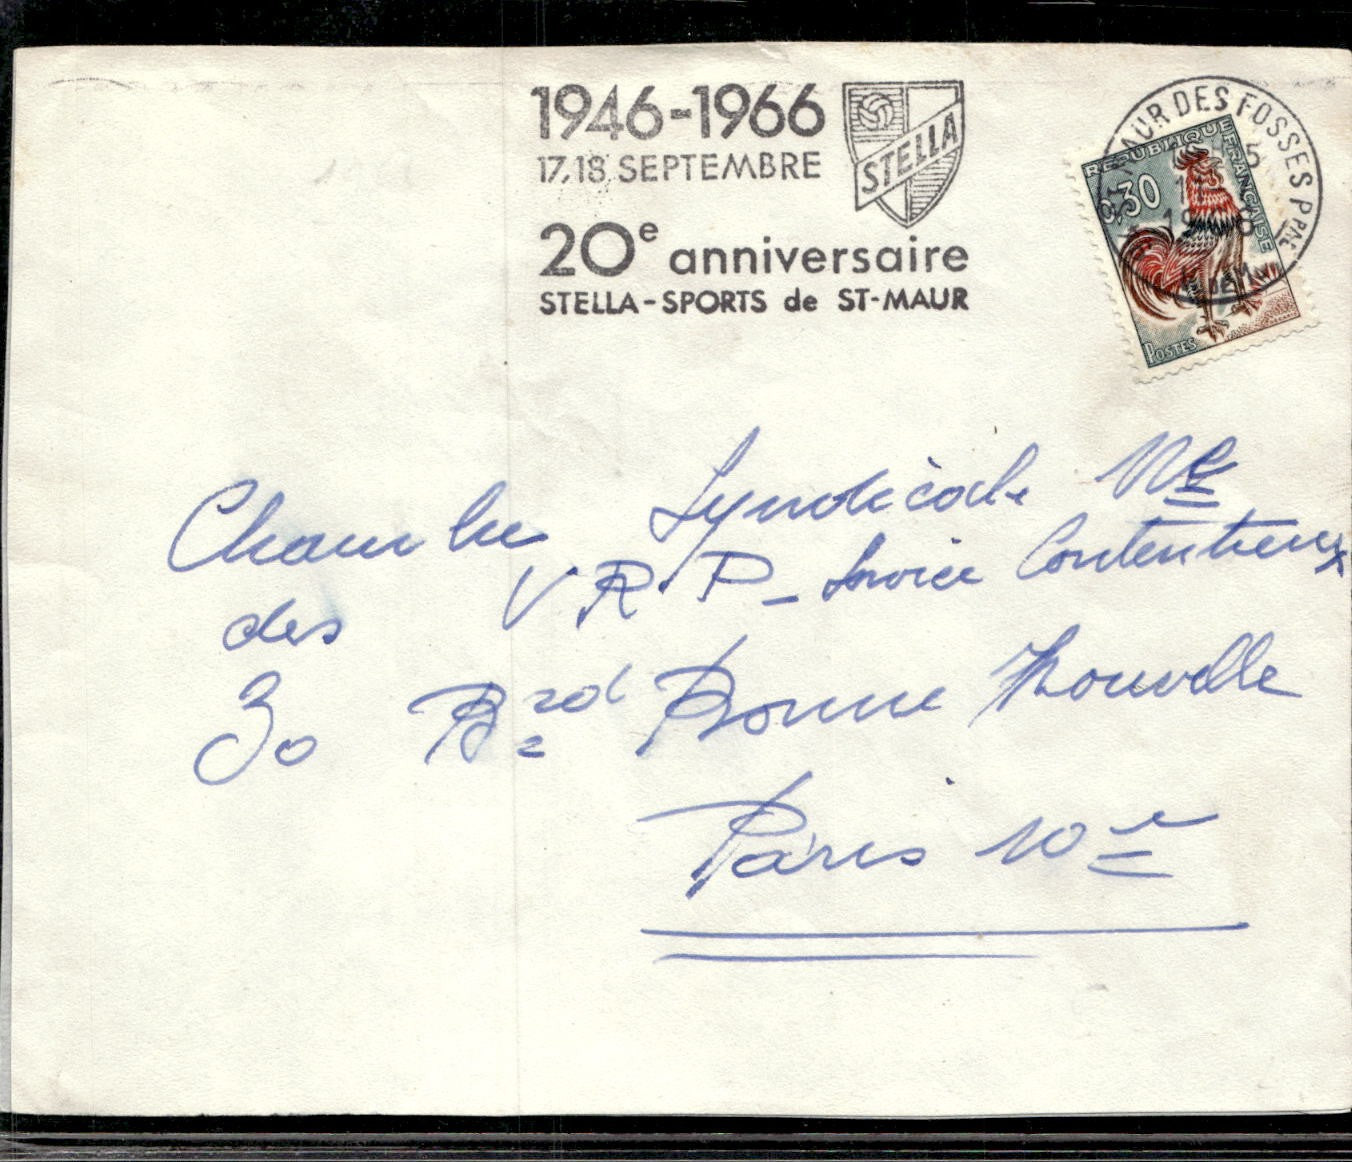 1946-1966
17.18 SEPTEMBRE
STELLA
20e anniversaire
STELLA-SPORTS de ST-MAUR
MAUR DES FOSSES PPAL
REPUBLIQUE FRANÇAISE
0,30
POSTES
Chambre Syndicale Nle
des V.R.P - Service Contentieux
30 Brd Bonne Nouvelle
Paris 10e